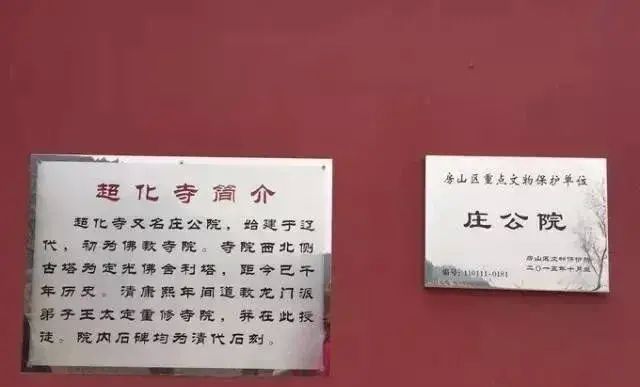 超化寺简介
超化寺又名庄公院，始建于辽
代，初为佛教寺院。寺院西北侧
古塔为定光佛舍利塔，距今已千
年历史。清康熙年间道教龙门派
弟子王太定重修寺院，并在此授
徒。院内石碑均为清代石刻。
房山区重点文物保护单位
庄公院
房山区文物保护所
二〇一五年十月立
编号：110111-0181